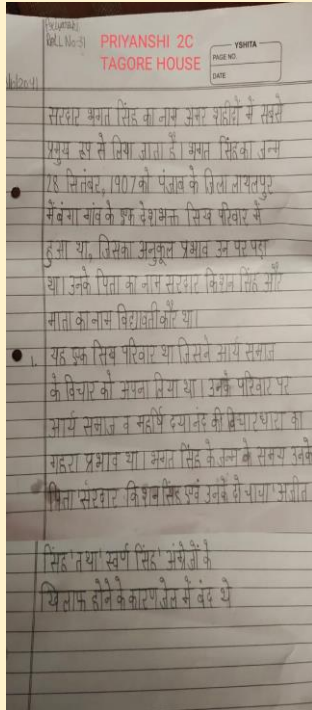 Priyanshi
Roll No:31
PRIYANSHI 2C
TAGORE HOUSE
YSHITA
PAGE NO.
DATE
सरदार भगत सिंह का नाम अमर शहीदों में सबसे
प्रमुख रूप से लिया जाता है। भगत सिंह का जन्म
28 सितंबर, 1907 को पंजाब के जिला लायलपुर
में बंगा गांव के एक देशभक्त सिख परिवार में
हुआ था, जिसका अनुकूल प्रभाव उन पर पड़ा
था। उनके पिता का नाम सरदार किशन सिंह और
माता का नाम विद्यावती कौर था।
1. यह एक सिख परिवार था जिसने आर्य समाज
के विचार को अपना लिया था। उनके परिवार पर
आर्य समाज व महर्षि दयानंद की विचारधारा का
गहरा प्रभाव था। भगत सिंह के जन्म के समय उनके
पिता 'सरदार किशन सिंह एवं उनके दो चाचा 'अजीत
सिंह' तथा 'स्वर्ण सिंह' अंग्रेजों के
खिलाफ होने के कारण जेल में बंद थे